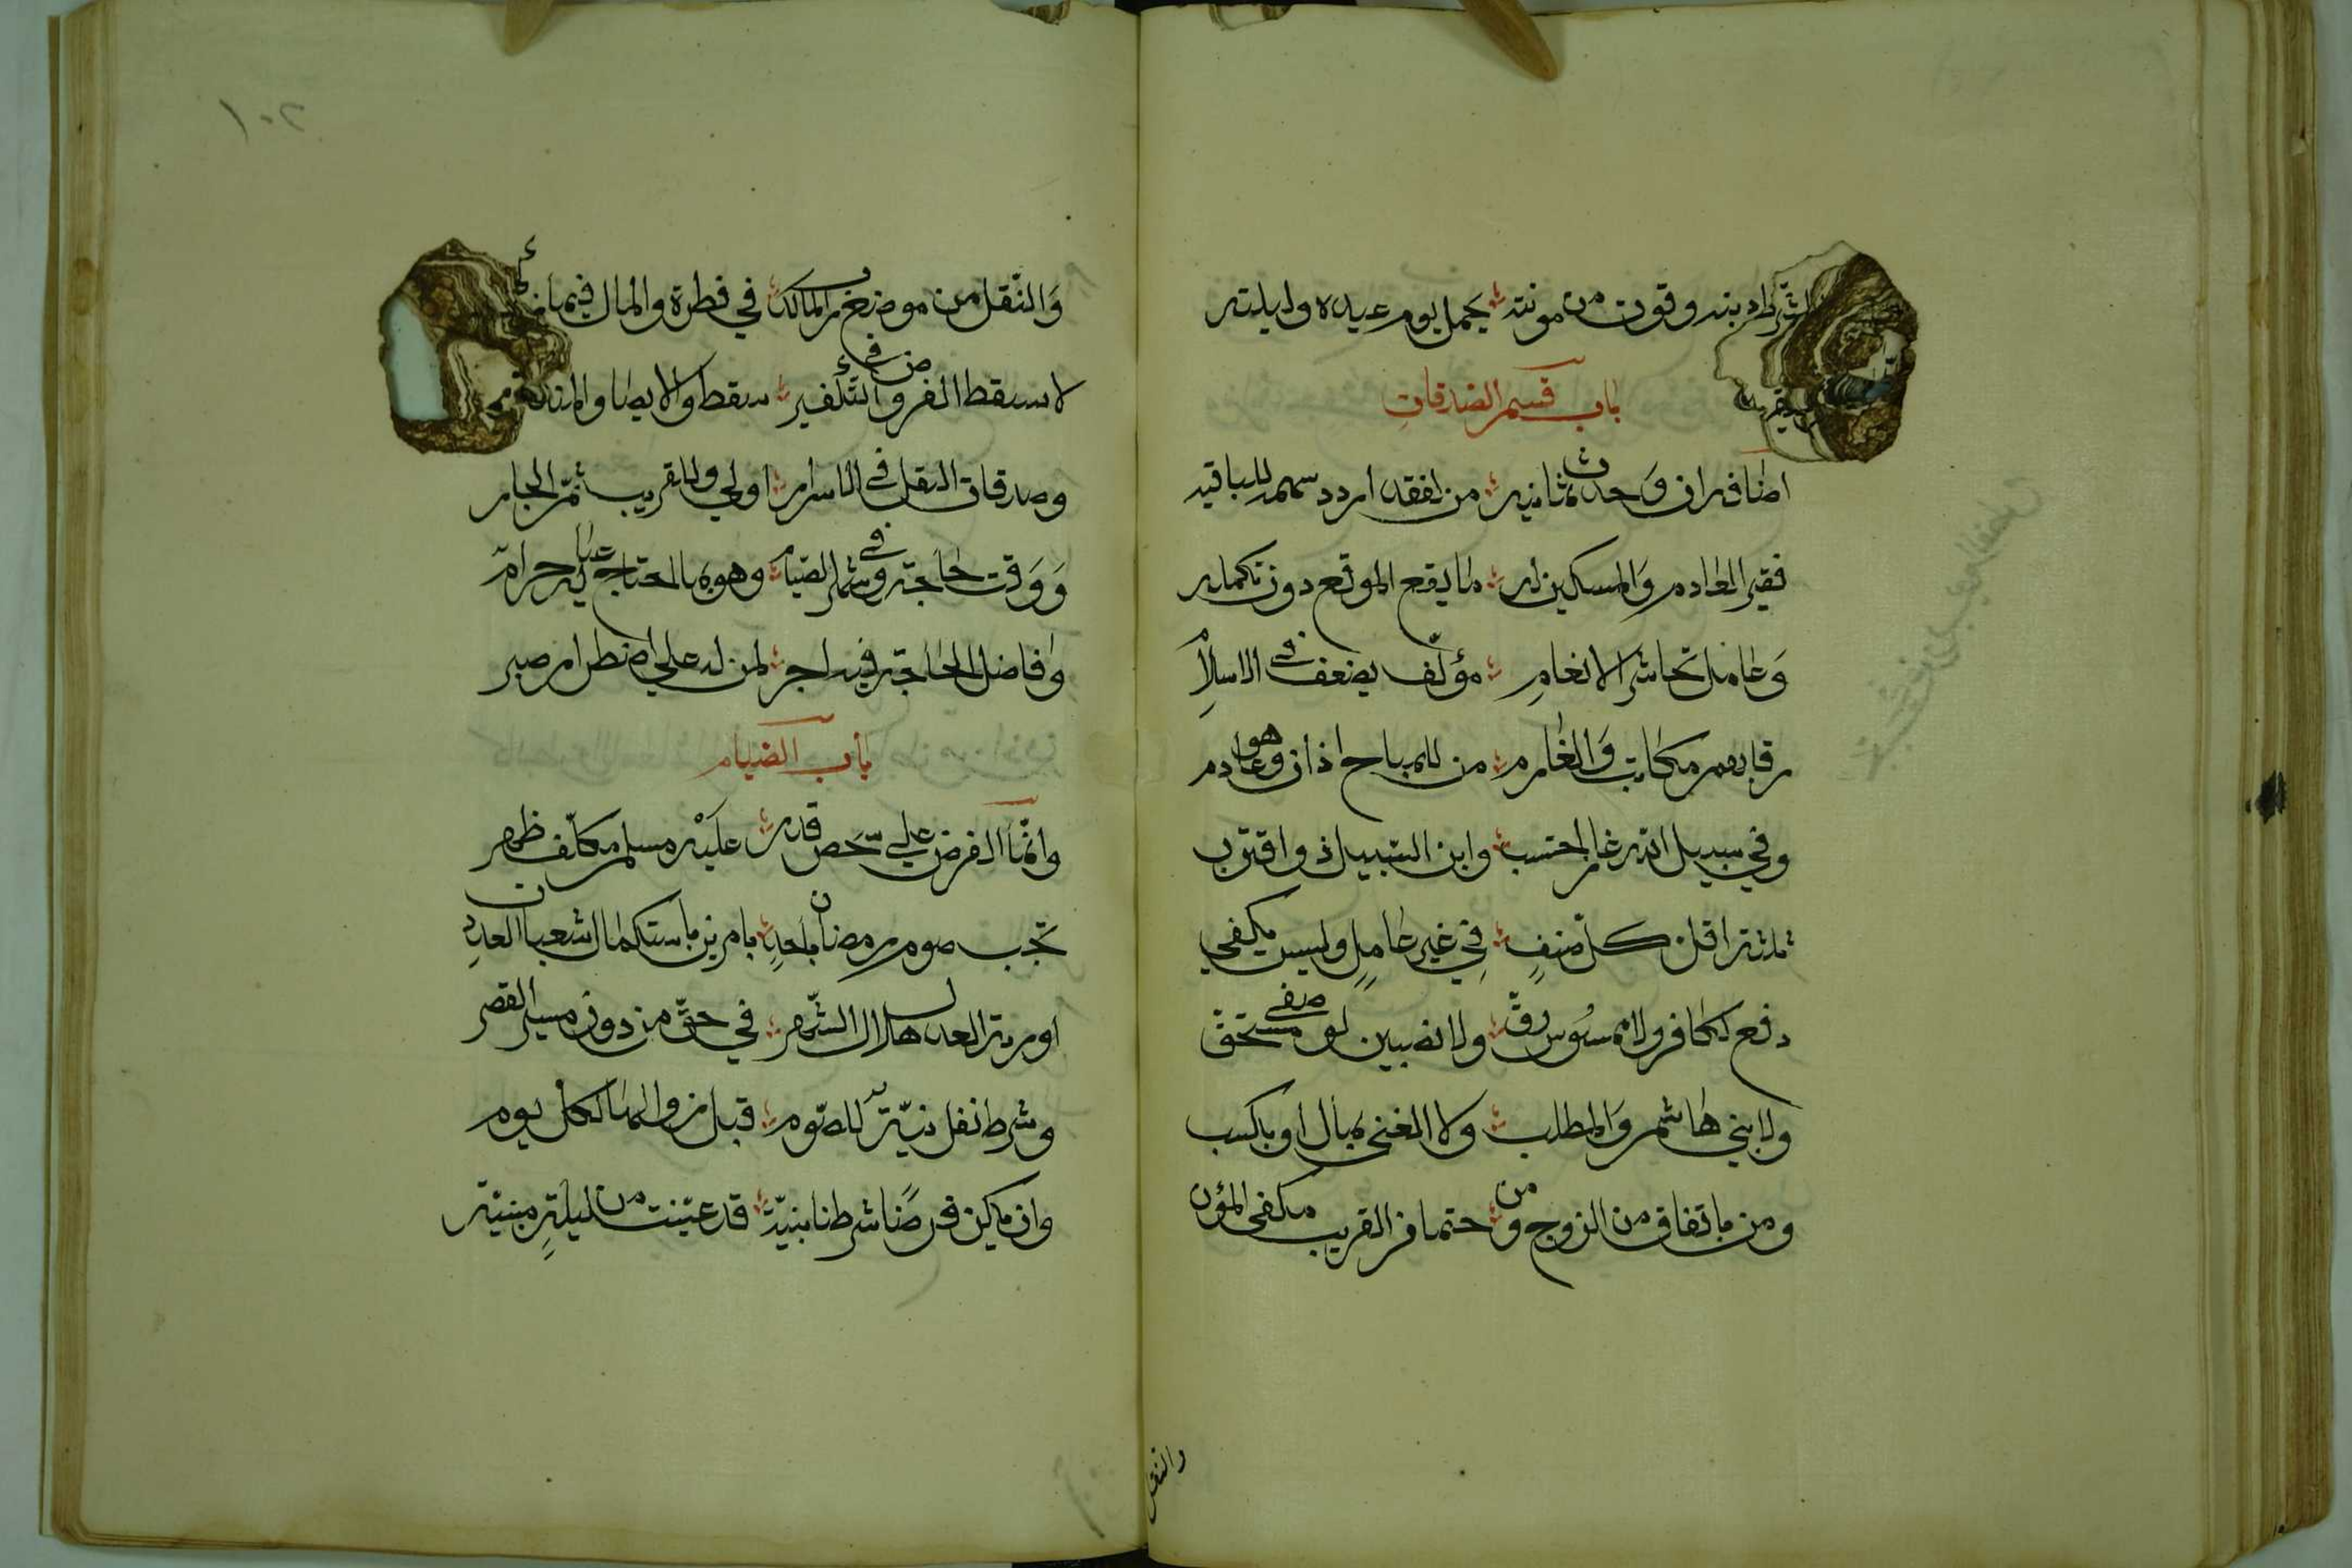 دينه وقوت من مونته يحمل يوم عيده وليلته
باب قسم الصدقات
اصنافه ان وجدت ثمانيه من يفقد اردد سهمه للباقيه
فقير العادم والمسكين له ما يقع الموقع دون تكمله
وَعامل كحاشر الانعامِ مؤلّف يضعف في الاسلامِ
رقابهم مكاتب وَالغارم من للمباح اذان وهو عادم
وفي سبيل الله غاز احتسب وابن السبيل ذو اقترب
ثلثة اقل كل صنفٍ فِي غير عاملٍ وليس يكفي
دفع لكافر ولا ممسوس رقّ ولا نصيبين لوصفي مستحق
ولا بني هاشم وَالمطلب وَلا الغني بمال او بكسب
ومن بانفاق من الزوج ومن حتما من القريب مكفي المؤن
والنقل
١٠٢
وَالنّقل من موضع المالك في فطرة والمال فيما
لا يسقط الفرض وفي التّكفير يسقط والايصا
وصدقات النفل في الاسرار اولي وللقريب ثمّ الجار
وَوَقت حاجة وفي شهر الصّيام وهو بما احتاج عيالٌ حرام
وَفاضل الحاجة فيه اجر لمن له علي اضطرار صبر
باب الصيام
وانّما الفرض علي شخص قدر عَليْه مسلم مكلّف طهر
تجب صوم رمضان باحدِ بامرين باستكمال شعبان العددِ
او رؤية العدل هلال الشّهر في حقّ من دون مسير القصر
وشرط نفل نيّة للصّوم قبل زوالها لكل يوم
وان يكن فرضًا شرطنا نيّة قد عيّنت من ليلةٍ مبيّته